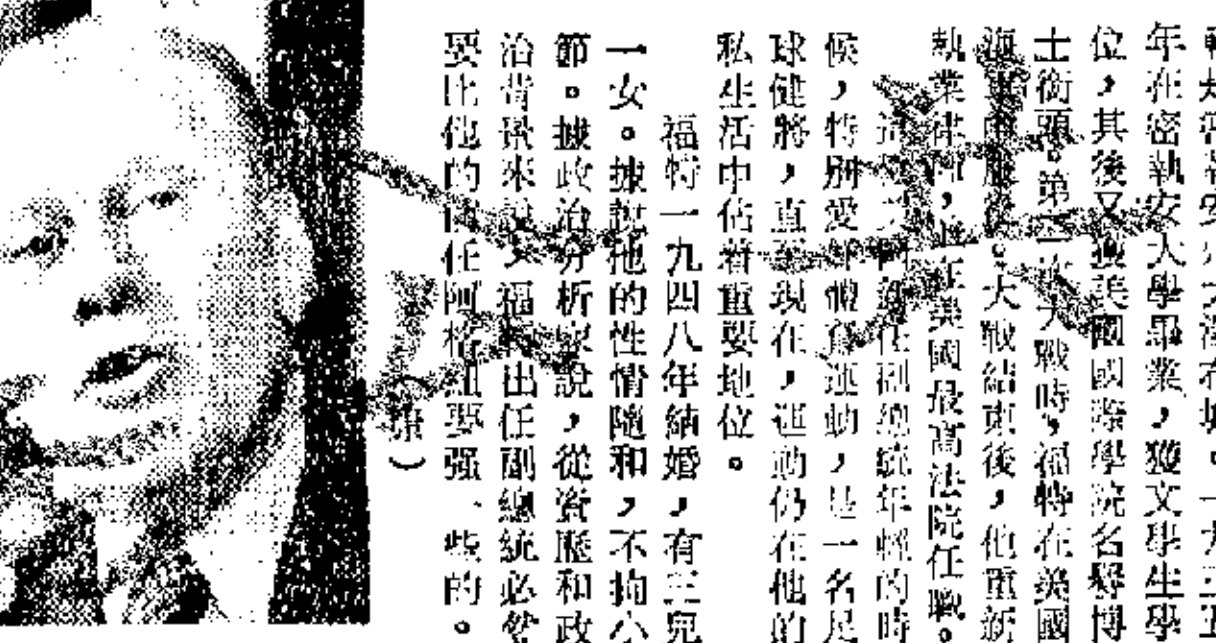 年在密執安大學畢業，獲文學學士
位，其後又獲美國國際學院名譽博
士銜頭。第二次大戰時，福特在美國
海軍服役。大戰結束後，他重新
執業律師，並在美國最高法院任職。
這位新任副總統年輕的時
候，特別愛好體育運動，是一名足
球健將，直至現在，運動仍在他的
私生活中佔着重要地位。
福特一九四八年結婚，有三兒
一女。據說他的性情隨和，不拘小
節。據政治分析家說，從資歷和政
治背景來說，福特出任副總統必然
要比他的前任阿格紐要强一些的。
（康）